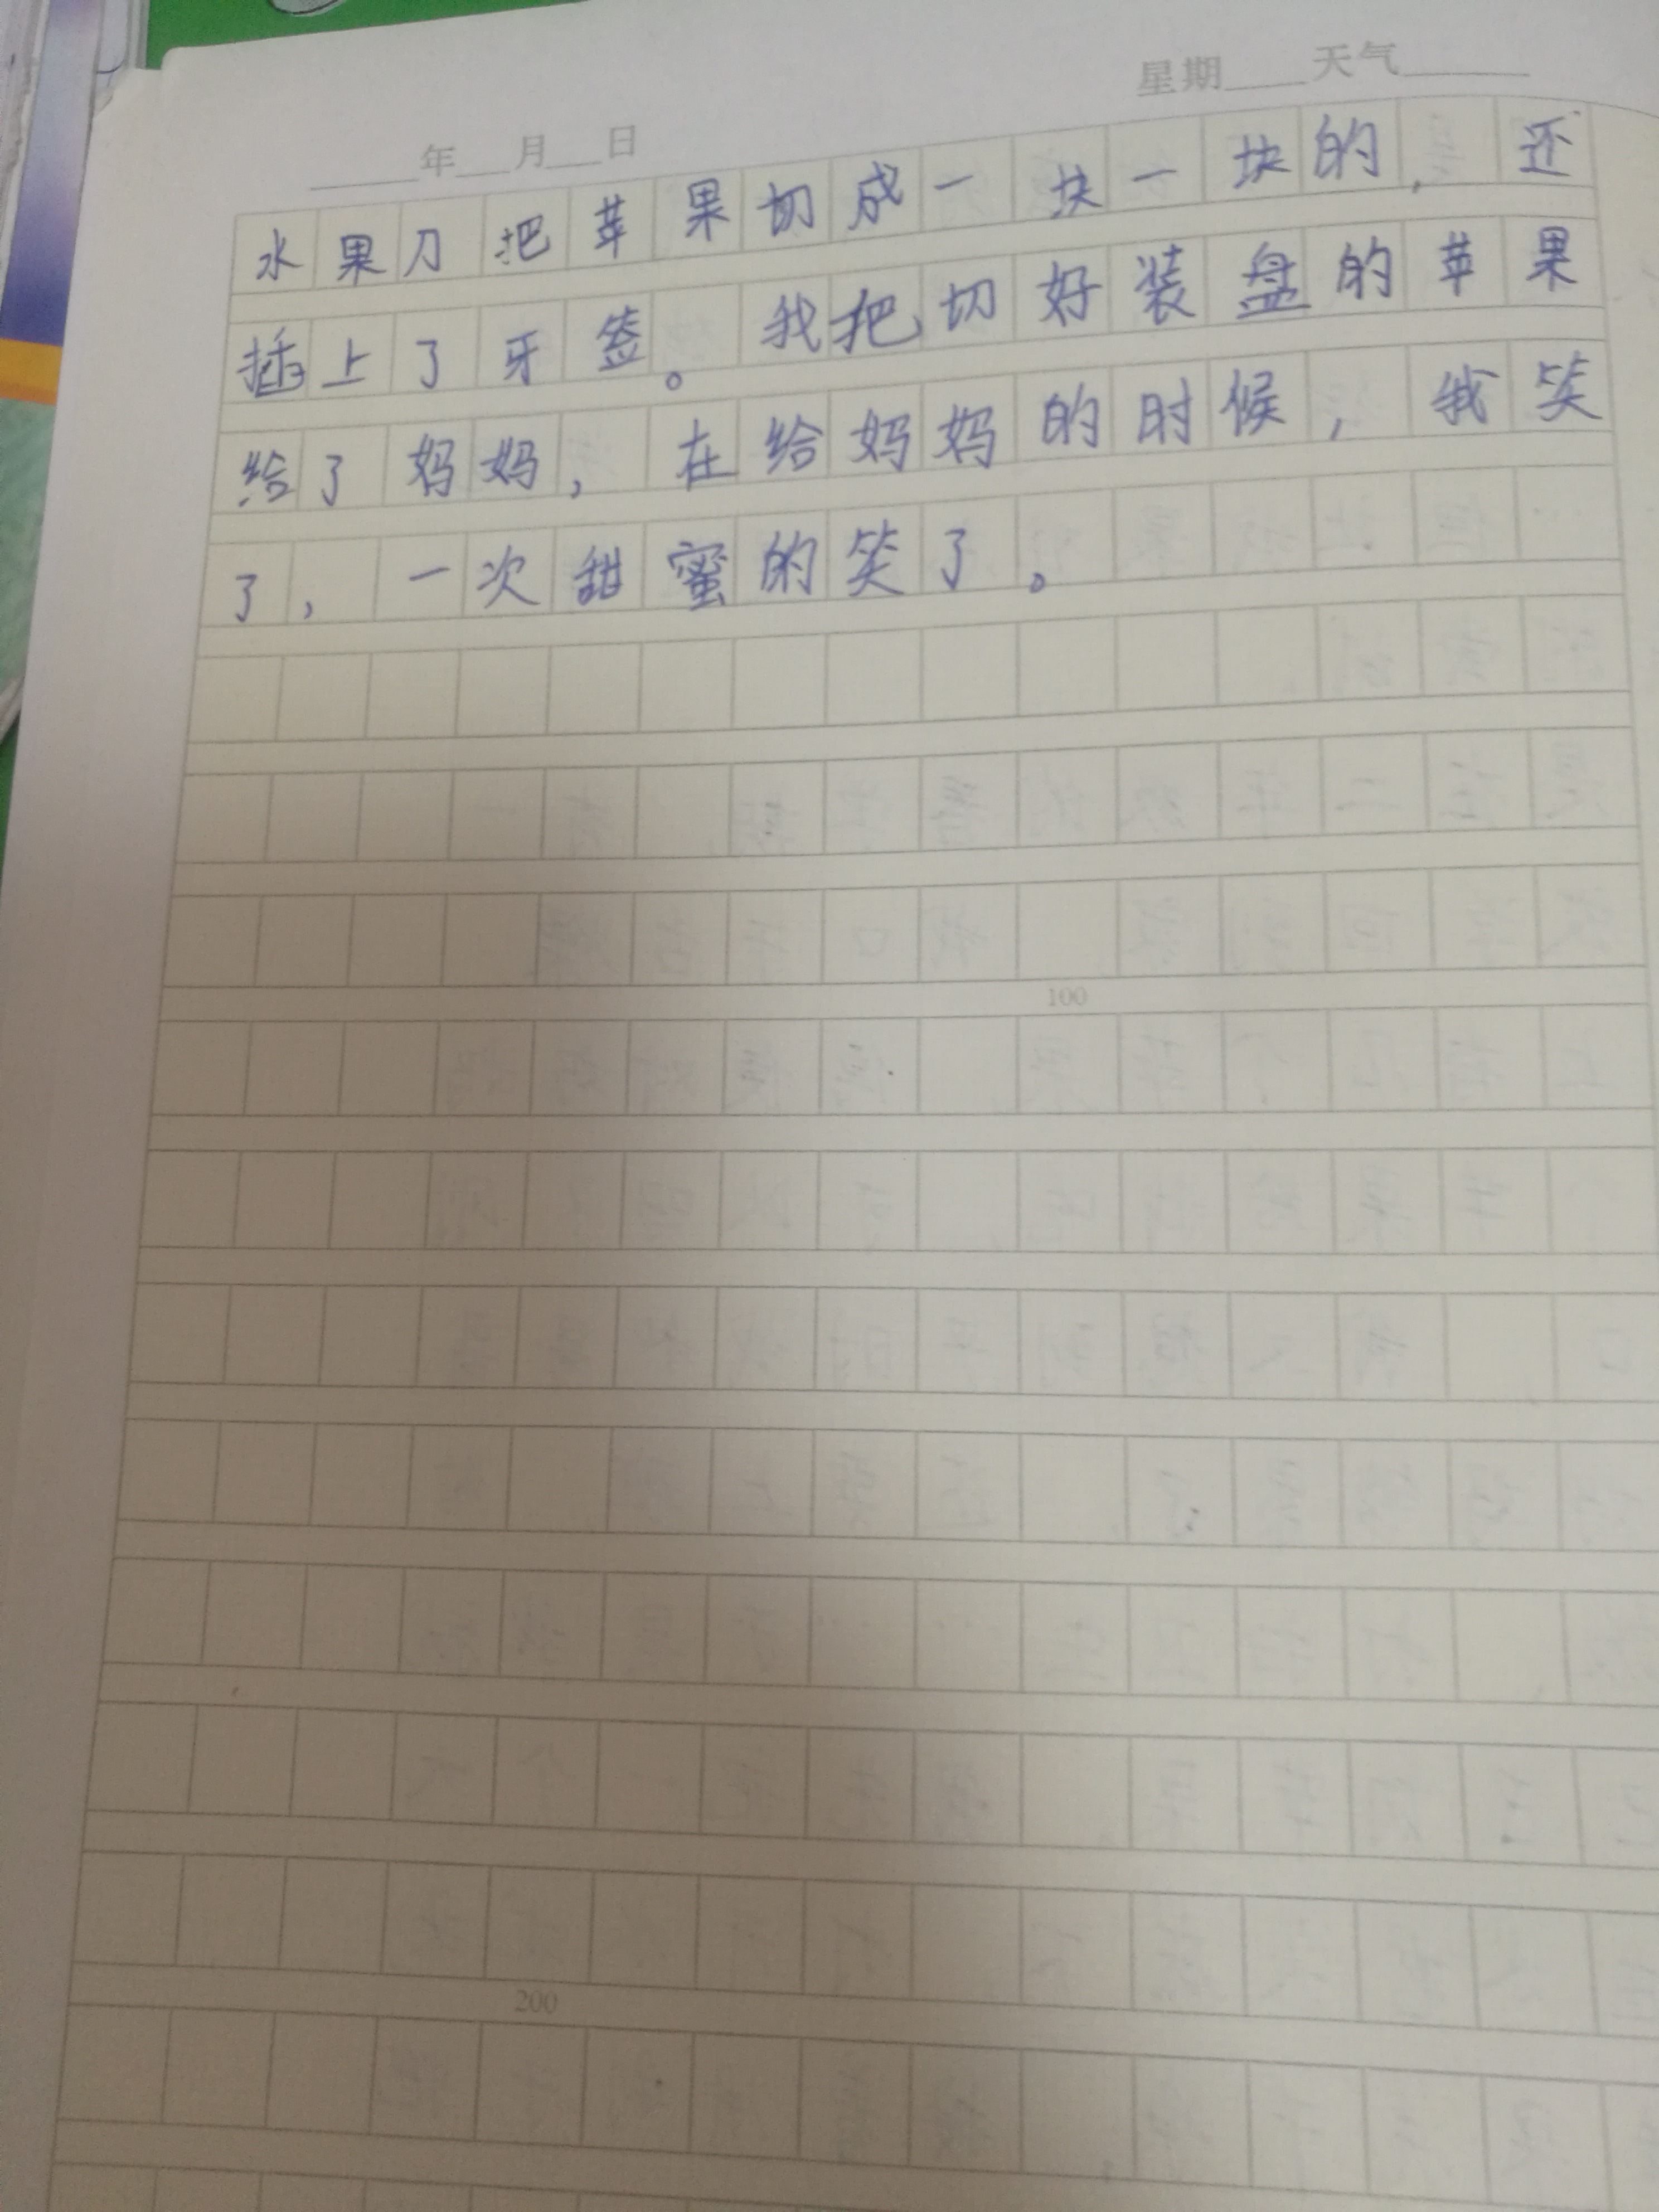 星期____天气____
____年__月__日
水果刀把苹果切成一块一块的，还
插上了牙签。我把切好装盘的苹果
给了妈妈，在给妈妈的时候，我笑
了，一次甜蜜的笑了。
100
200